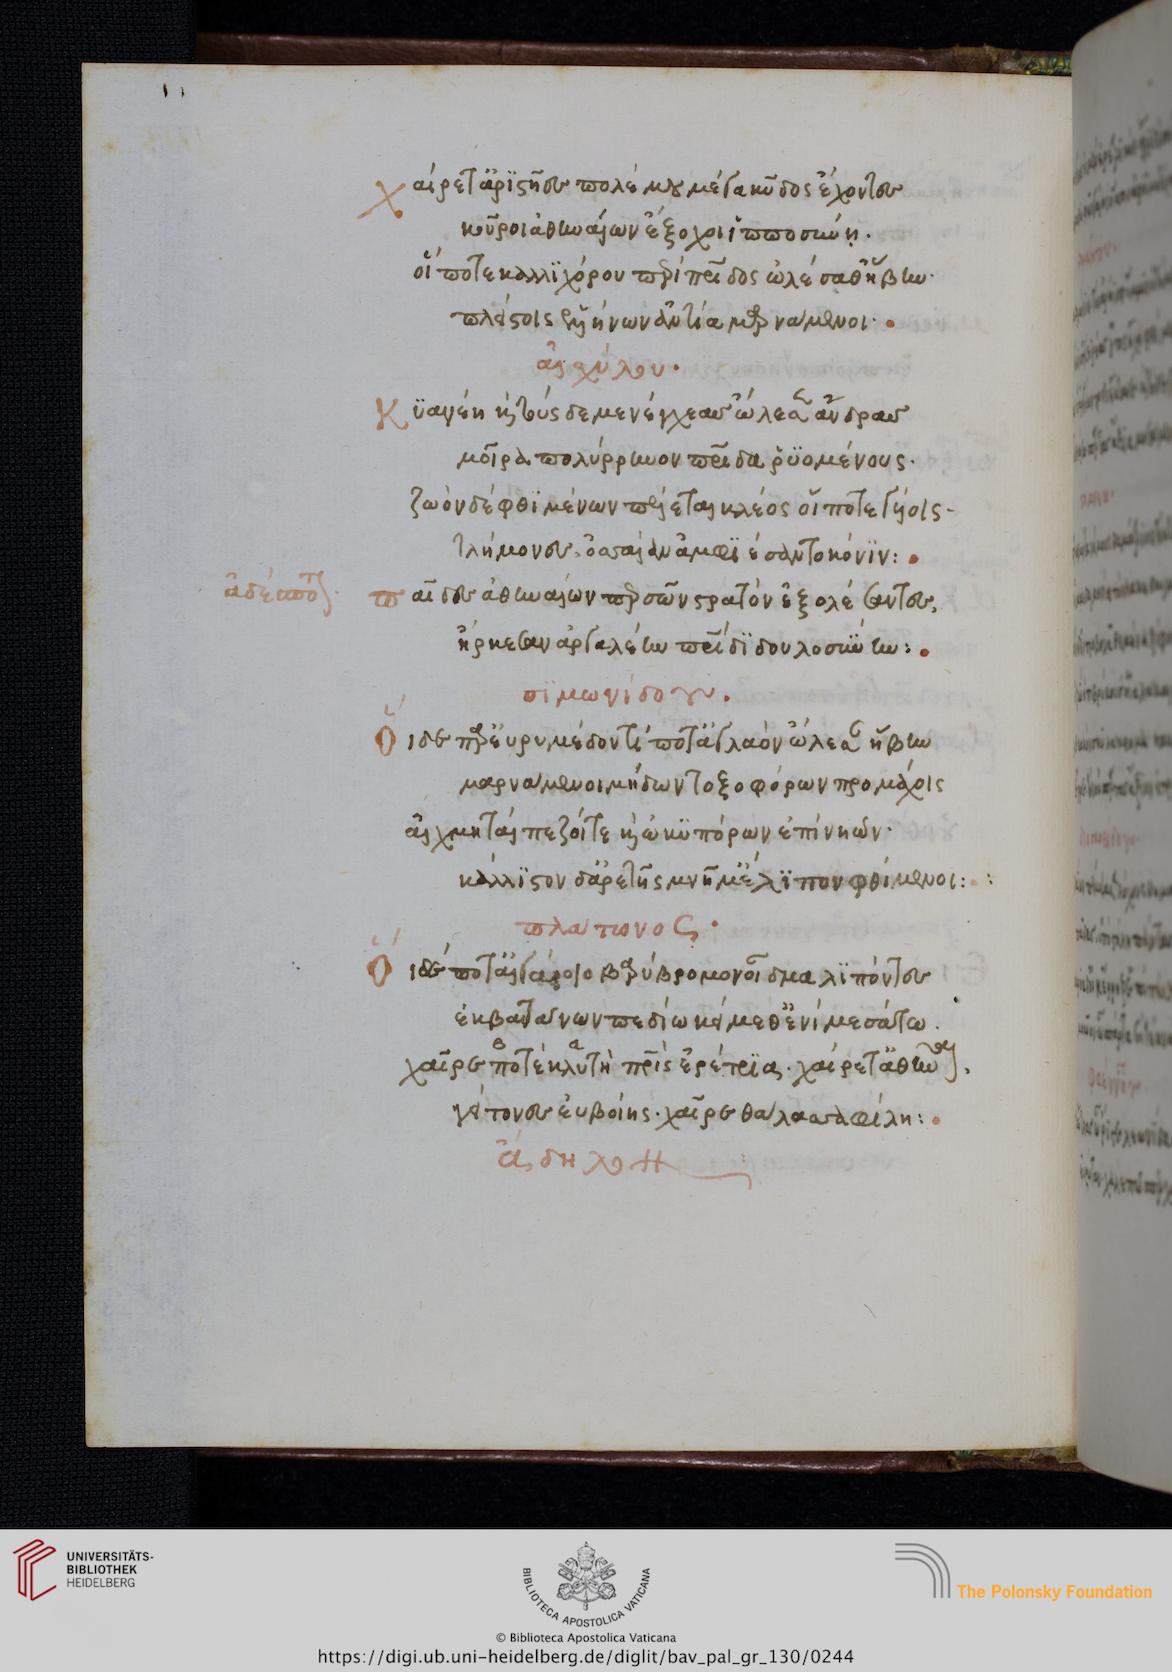 χαίρετ' ἀριστῆες πολέμου μέγα κῦδος ἔχοντες
κοῦροι ἀθηναίων ἔξοχοι ἱπποσύνῃ.
οἵ ποτε καλλιχόρου περὶ πατρίδος ὠλέσαθ' ἥβην.
πλείστοις ἑλλήνων ἀντία μαρνάμενοι.
αἰσχύλου.
κυανέη καὶ τούσδε μενέγχεας ὤλεσεν ἄνδρας
μοῖρα πολύρρηνον πατρίδα ῥυομένους.
ζωὸν δὲ φθιμένων πέλεται κλέος οἵ ποτε γυίοις
τλήμονες ὀσσαίαν ἀμφιέσαντο κόνιν:
ἀδέσποτον
παῖδες ἀθηναίων περσῶν στρατὸν ἐξολέσαντες,
ἤρκεσαν ἀργαλέην πατρίδι δουλοσύνην:
σιμωνίδου.
Οἵδε παρ' εὐρυμέδοντί ποτ' ἀγλαὸν ὤλεσαν ἥβην
μαρνάμενοι μήδων τοξοφόρων προμάχοις
αἰχμηταὶ πεζοί τε καὶ ὠκυπόρων ἐπὶ νηῶν.
κάλλιστον δ' ἀρετῆς μνῆμ' ἔλιπον φθίμενοι:
πλάτωνος.
Οἵδε ποτ' αἰγαίοιο βαρύβρομον οἶδμα λιπόντες
ἐκβατάνων πεδίῳ κείμεθ' ἐνὶ μεσάτῳ.
χαῖρε ποτὲ κλυτὴ πατρὶς ἐρέτρια. χαίρετ' ἀθῆναι,
γείτονες εὐβοίης. χαῖρε θάλασσα φίλη:
ἄδηλον
UNIVERSITÄTS-
BIBLIOTHEK
HEIDELBERG
BIBLIOTECA APOSTOLICA VATICANA
The Polonsky Foundation
© Biblioteca Apostolica Vaticana
https://digi.ub.uni-heidelberg.de/diglit/bav_pal_gr_130/0244